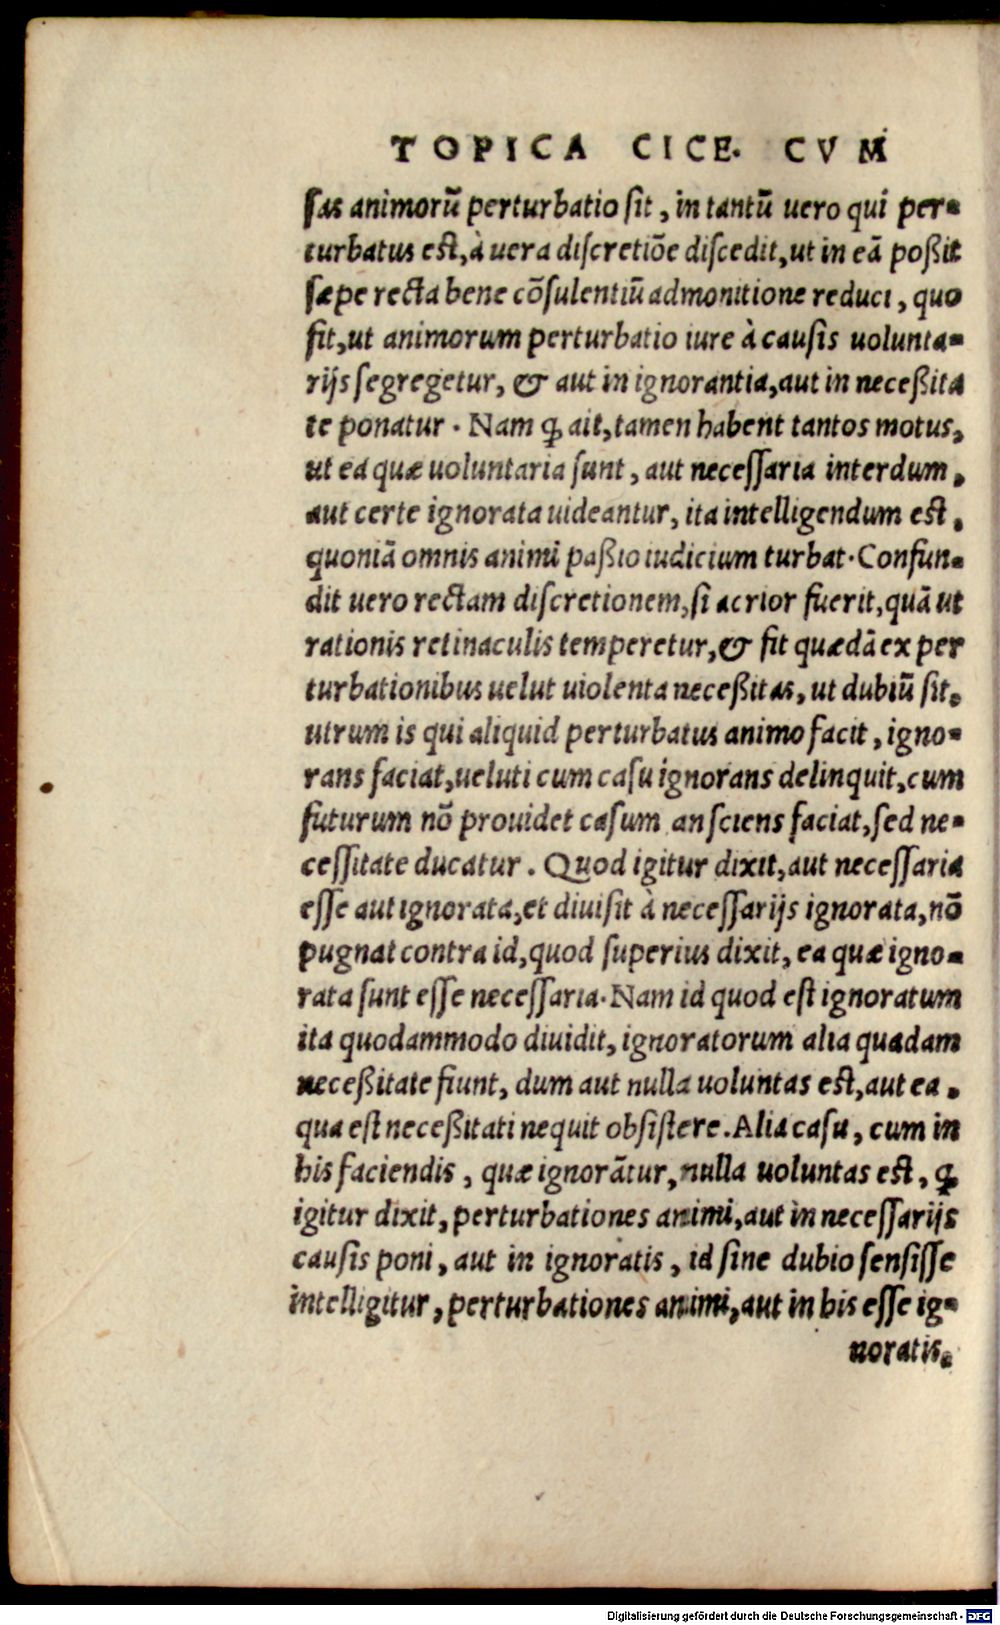 TOPICA CICE. CVM
sas animorũ perturbatio sit, in tantũ uero qui per-
turbatus est, à uera discretiõe discedit, ut in eã poßit
sæpe recta bene cõsulentiũ admonitione reduci, quo
fit, ut animorum perturbatio iure à causis uolunta-
rijs segregetur, & aut in ignorantia, aut in neceßita
te ponatur. Nam ꝙ ait, tamen habent tantos motus,
ut ea quæ uoluntaria sunt, aut necessaria interdum,
aut certe ignorata uideantur, ita intelligendum est,
quoniã omnis animi paßio iudicium turbat. Confun-
dit uero rectam discretionem, si acrior fuerit, quã ut
rationis retinaculis temperetur, & fit quædã ex per
turbationibus uelut uiolenta neceßitas, ut dubiũ sit,
utrum is qui aliquid perturbatus animo facit, igno-
rans faciat, ueluti cum casu ignorans delinquit, cum
futurum nõ prouidet casum an sciens faciat, sed ne-
cessitate ducatur. Quod igitur dixit, aut necessaria
esse aut ignorata, et diuisit à necessarijs ignorata, nõ
pugnat contra id, quod superius dixit, ea quæ igno-
rata sunt esse necessaria. Nam id quod est ignoratum
ita quodammodo diuidit, ignoratorum alia quadam
neceßitate fiunt, dum aut nulla uoluntas est, aut ea,
qua est neceßitati nequit obsistere. Alia casu, cum in
his faciendis, quæ ignorãtur, nulla uoluntas est, ꝙ
igitur dixit, perturbationes animi, aut in necessarijs
causis poni, aut in ignoratis, id sine dubio sensisse
intelligitur, perturbationes animi, aut in his esse ig-
noratis,
Digitalisierung gefördert durch die Deutsche Forschungsgemeinschaft - DFG